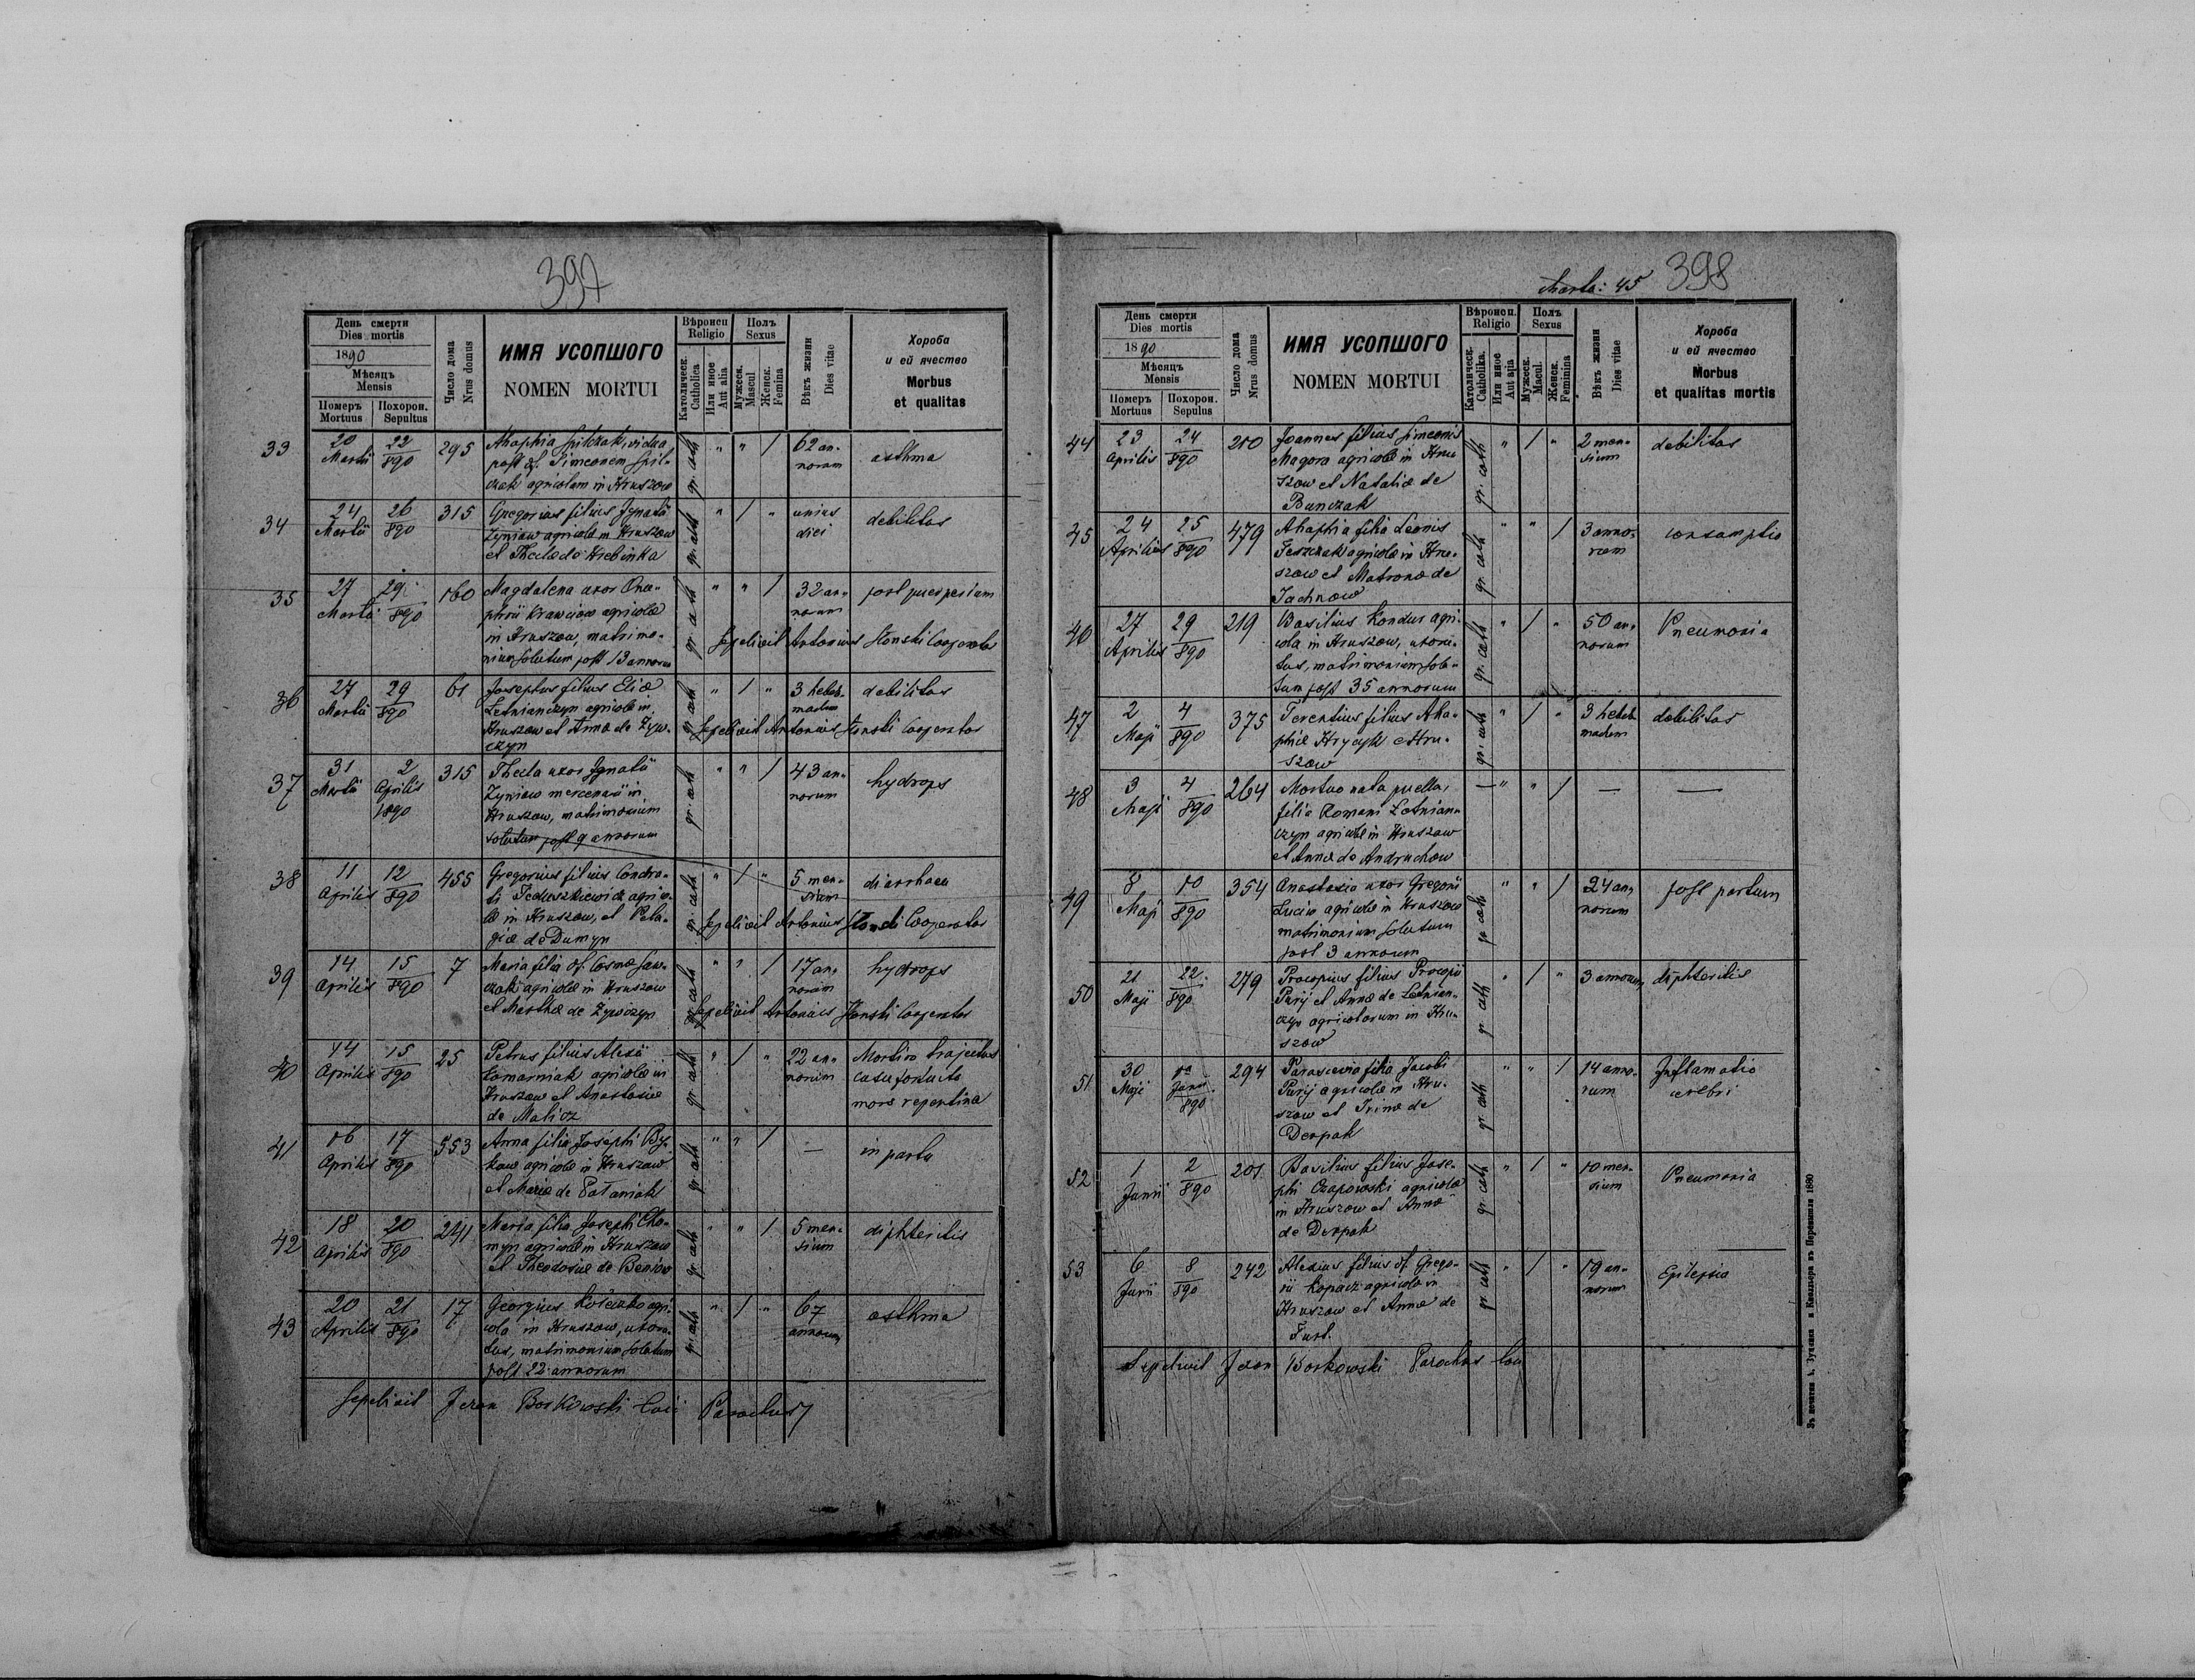 397
День смерти
Dies mortis
1890
Мѣсяцъ
Mensis
Померъ
Mortuus
Похорон.
Sepultus
Число дома
Nrus domus
ИМЯ УСОПШОГО
NOMEN MORTUI
Вѣроисп
Religio
Католическ.
Catholica
Или иное
Aut alia
Полъ
Sexus
Мужеск.
Mascul
Женск.
Femina
Вѣкъ жизни
Dies vitae
Хороба
и ей ячество
Morbus
et qualitas
33
20 Martii
22/890
295
Ahaphia Spilczak, vidua
post df. Simeonem Spil-
czak agricolam in Hruszow
gr. cath
" " /
62 an-
norum
asthma
34
24 Martii
26/890
315
Gregorius filius Ignatii
Zyniow agricolæ in Hruszow
et Theclæ de Hrebinka
gr. cath
" / "
unius
diei
debilitas
35
27 Martii
29/890
160
Magdalena uxor Onu-
phrii Krawciow agricolæ
in Hruszow, matrimo-
nium solutum post 13 annorum
gr. cath
" " /
32 an-
norum
post puerperium
Sepelivit Antonius Stonski Cooperator
36
27 Martii
29/890
61
Josephus filius Eliæ
Letnianczyn agricolæ in
Hruszow et Annæ de Zyw-
czyn
gr. cath
" / "
3 hebdo-
madum
debilitas
Sepelivit Antonius Stonski Cooperator
37
31 Martii
2 Aprilis 1890
315
Thecla uxor Ignatii
Zyniow mercenarii in
Hruszow, matrimonium
solutum post 9 annorum
gr. cath
" " /
43 an-
norum
hydrops
38
11 Aprilis
12/890
455
Gregorius filius Condra-
ti Feduszkiewicz agrico-
læ in Hruszow, et Pela-
giæ de Dumyn
gr. cath
" / "
5 men-
sium
diarrhaea
Sepelivit Antonius Stonski Cooperator
39
14 Aprilis
15/890
7
Maria filia df. Cosmæ Saw-
czak agricolæ in Hruszow
et Marthæ de Zywczyn
gr. cath
" " /
17 an-
norum
hydrops
Sepelivit Antonius Stonski Cooperator
40
14 Aprilis
15/890
25
Petrus filius Alexii
Komarniak agricolæ in
Hruszow et Anastasiæ
de Malicz
gr. cath
" / "
22 an-
norum
trajectus
casu fortuito
mors repentina
41
16 Aprilis
17/890
553
Anna filia Josephi By-
kow agricolæ in Hruszow
et Mariæ de Pataniak
gr. cath
" " /
—
in partu
42
18 Aprilis
20/890
241
Maria filia Josephi Cho-
myn agricolæ in Hruszow
et Theodosiæ de Beniow
gr. cath
" " /
5 men-
sium
diphteritis
43
20 Aprilis
21/890
17
Georgius agri-
cola in Hruszow, uxora-
tus, matrimonium solutum
post 22 annorum
gr. cath
" / "
67
annorum
asthma
Sepelivit Joan Borkowski loci Parochus
Charta: 45 398
День смерти
Dies mortis
1890
Мѣсяцъ
Mensis
Померъ
Mortuus
Похорон.
Sepulus
Число дома
Nrus domus
ИМЯ УСОПШОГО
NOMEN MORTUI
Вѣроисп.
Religio
Католическ.
Catholika.
Или иное
Aut alia
Полъ
Sexus
Мужеск.
Macul.
Женск.
Feminina
Вѣкъ жизни
Dies vitae
Хороба
и ей ячество
Morbus
et qualitas mortis
44
23 Aprilis
24/890
210
Joannes filius Simeonis
Magora agricolæ in Hru-
szow et Nataliæ de
Bunczak
gr. cath
" / "
2 men-
sium
debilitas
45
24 Aprilis
25/890
479
Ahaphia filia Leonis
Feszczak agricolæ in Hru-
szow et Matronæ de
Jachnow
gr. cath
" " /
3 anno-
rum
consumptio
46
27 Aprilis
29/890
219
Basilius Kondur agri-
cola in Hruszow, uxora-
tus, matrimonium solu-
tum post 35 annorum
gr. cath
" / "
50 an-
norum
Pneumonia
47
2 Maji
4/890
375
Terentius filius Aha-
phiæ Hrycyk e Hru-
szow
gr. cath
" / "
3 hebdo-
madum
debilitas
48
3 Maji
4/890
264
Mortuo nata puella,
filia Romani Letnian-
czyn agricolæ in Hruszow
et Annæ de Andruchow
— " " /
—
—
49
8 Maji
10/890
354
Anastasia uxor Gregorii
Luciw agricolæ in Hruszow
matrimonium solutum
post 3 annorum
gr. cath
" " /
24 an-
norum
post partum
50
21 Maji
22/890
279
Procopius filius Procopii
Puryj et Annæ de Letnian-
czyn agricolarum in Hru-
szow
gr. cath
" / "
3 annorum
diphteritis
51
30 Maji
1 Junii 890
294
Parascevia filia Jacobi
Puryj agricolæ in Hru-
szow et Irinæ de
Derpak
gr. cath
" " /
14 anno-
rum
Inflamatio
cerebri
52
1 Junii
2/890
201
Basilius filius Jose-
phi Czapowski agricolæ
in Hruszow et Annæ
de Derpak
gr. cath
" / "
10 men-
sium
Pneumonia
53
6 Junii
8/890
242
Alexius filius df. Grego-
rii Kopacz agricolæ in
Hruszow et Annæ de
Furt.
gr. cath
" / "
19 an-
norum
Epilepsia
Sepelivit Joan Borkowski Parochus loci